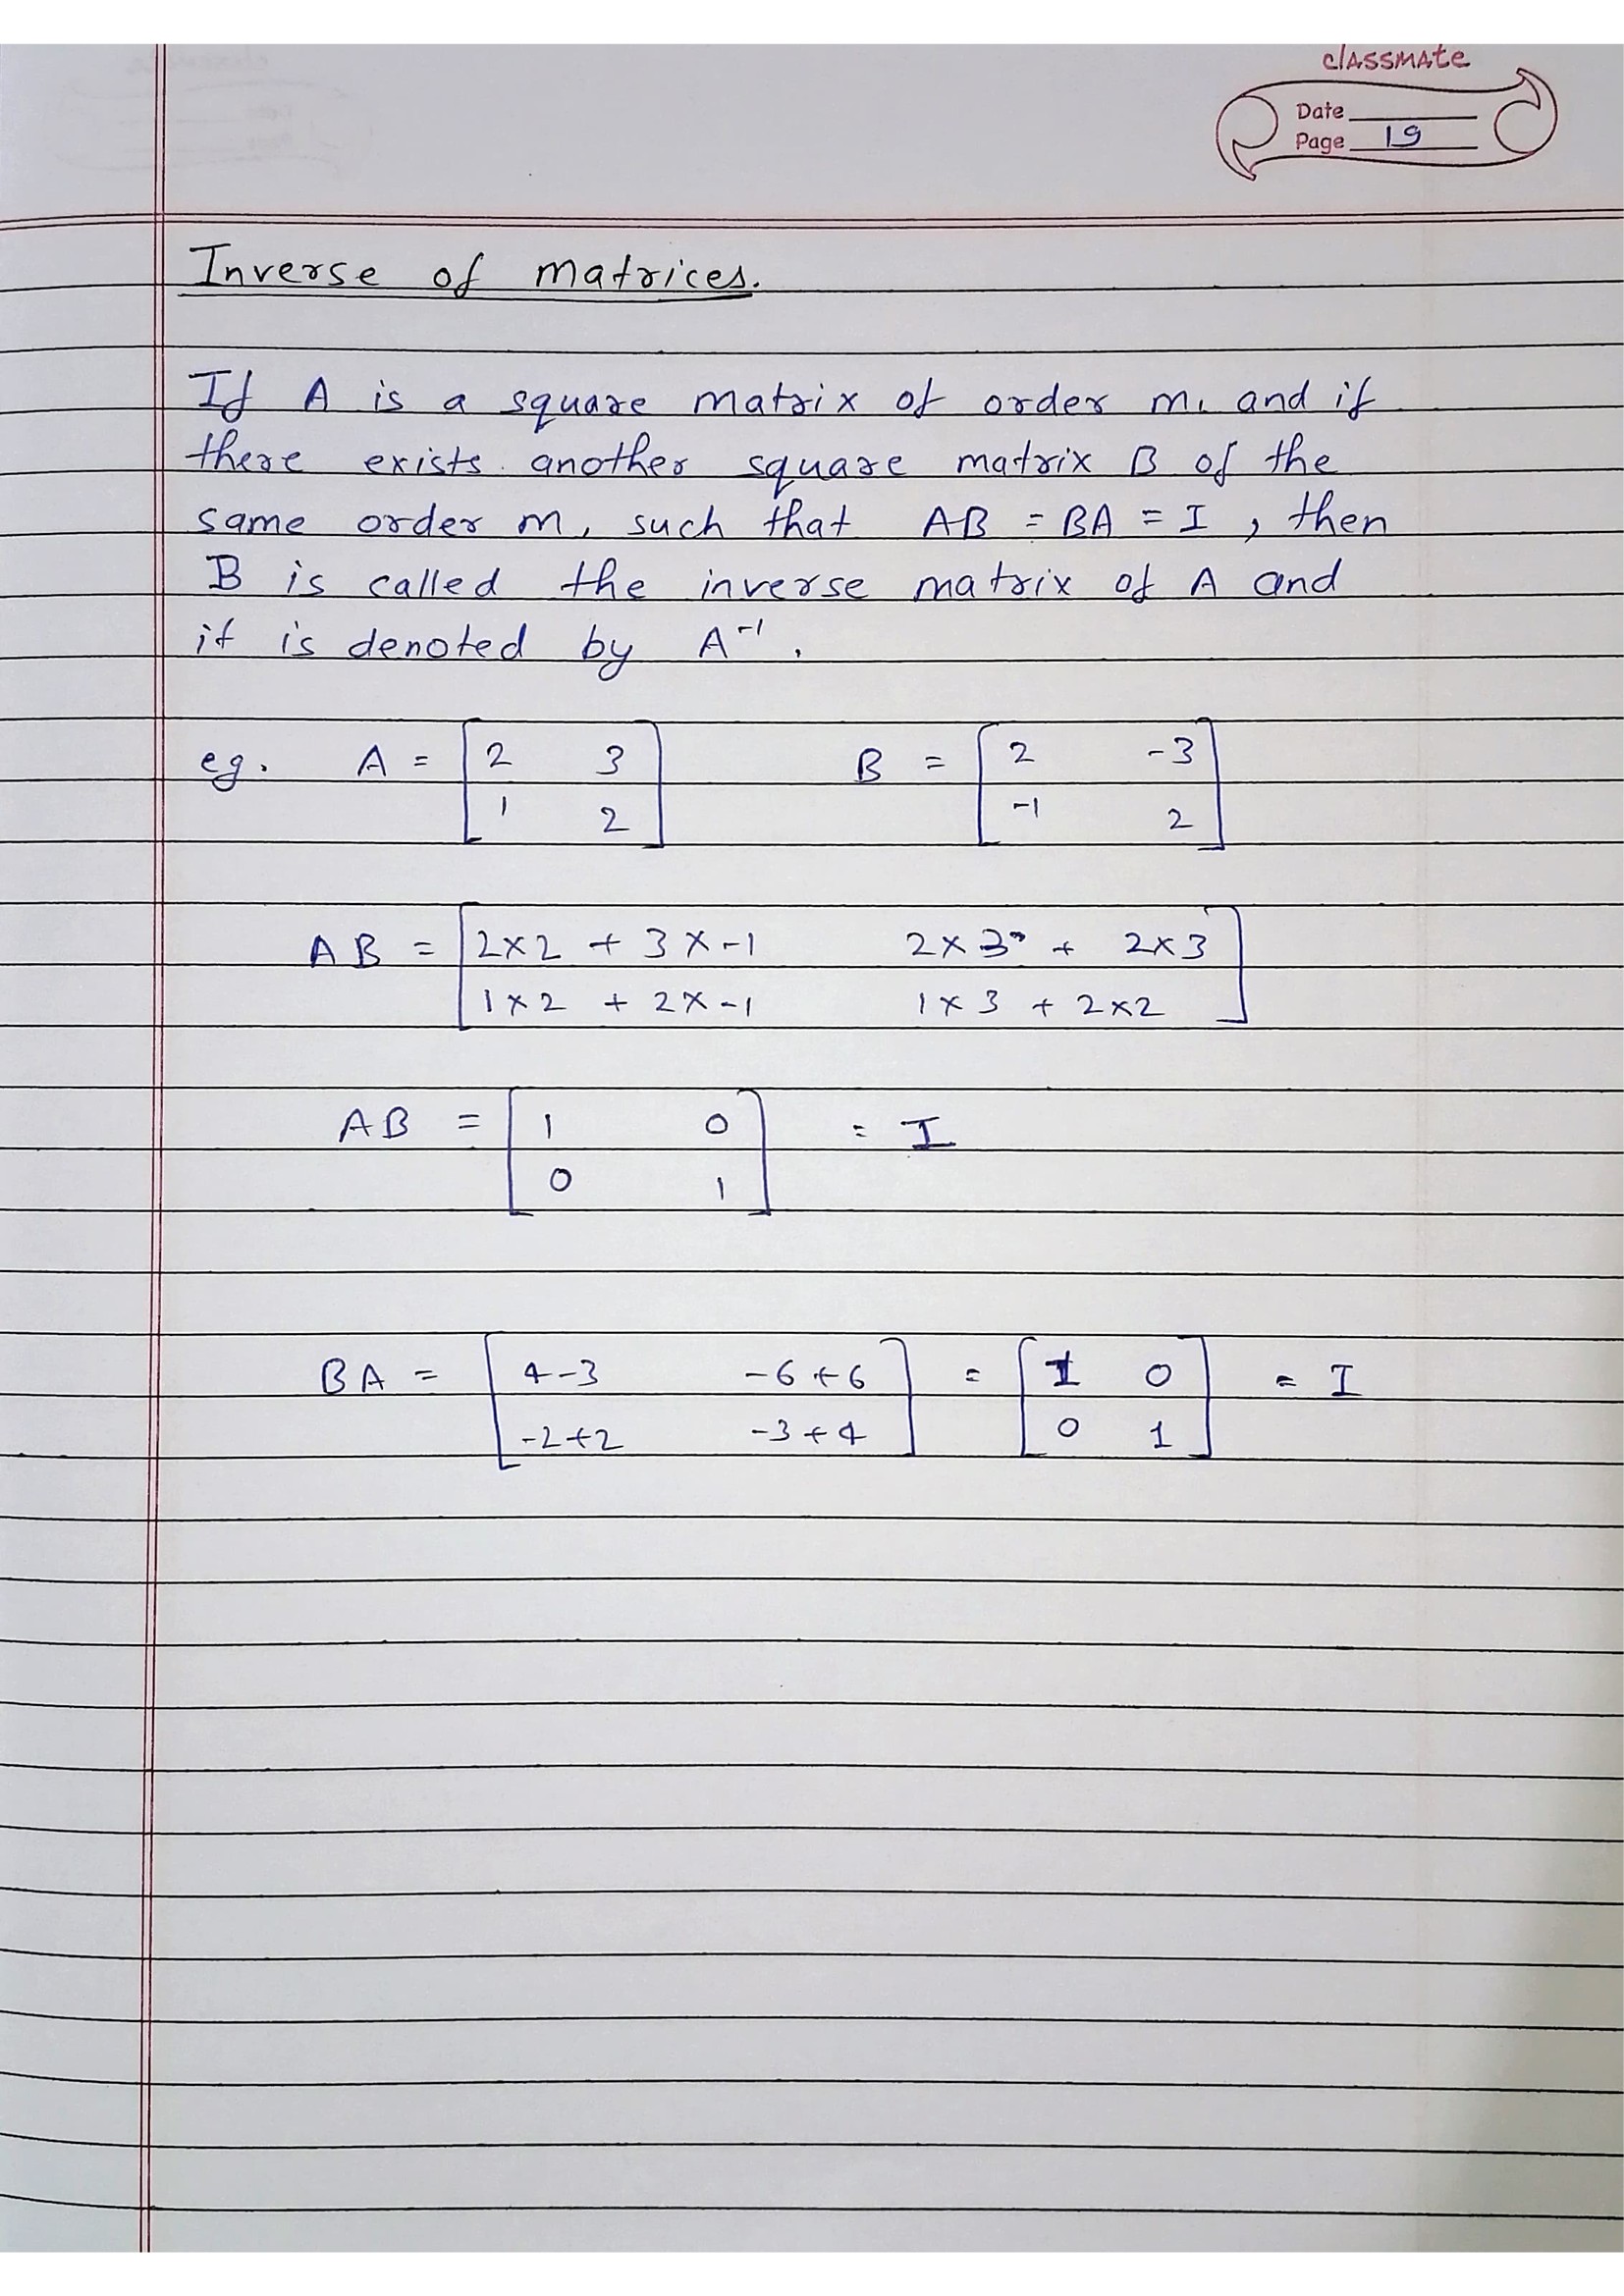 classmate
Date
Page 19
Inverse of matrices.
If A is a square matrix of order m, and if
there exists another square matrix B of the
same order m, such that AB = BA = I, then
B is called the inverse matrix of A and
it is denoted by A⁻¹.
eg. A = [2 3 B = [2 -3
1 2] -1 2]
AB = [2×2 + 3×-1 2×3 + 2×3
1×2 + 2×-1 1×3 + 2×2]
AB = [1 0 = I
0 1]
BA = [4-3 -6+6 = [1 0 = I
-2+2 -3+4] 0 1]